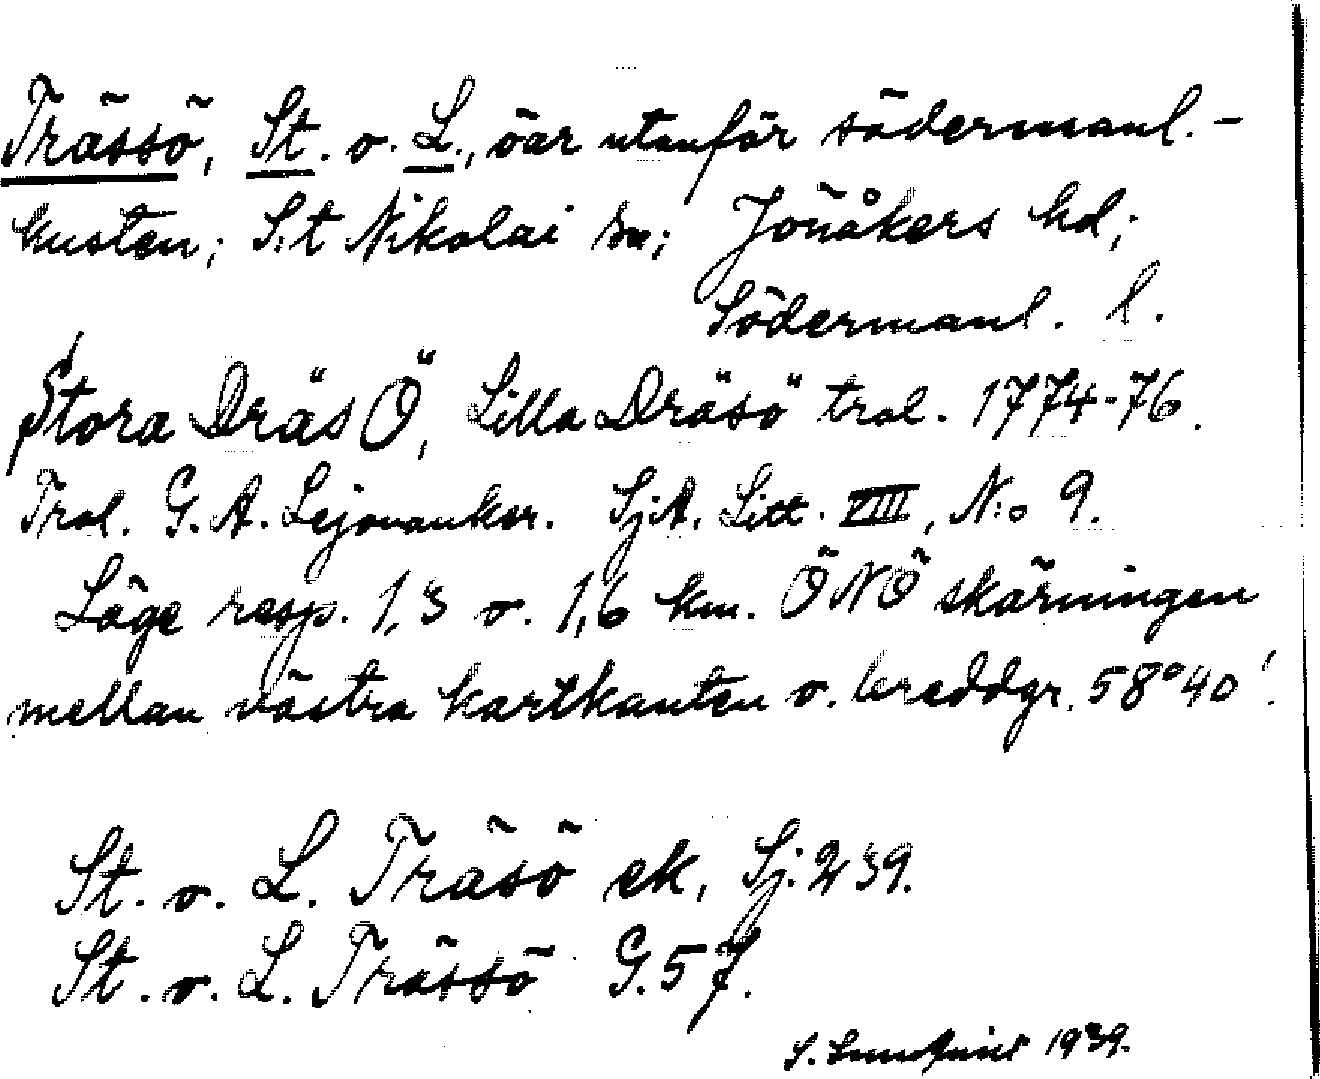 Trässö, St. o. L., öar utanför södermanl.-
kusten; S:t Nikolai sn; Jönåkers hd;
Södermanl. l.
Stora Dräs Ö, Lilla Dräsö trol. 1774-76.
Trol. G. A. Lejonanker. SjA. Litt. VIII, N:o 9.
Läge resp. 1,3 o. 1,6 km. ÖNÖ skärningen
mellan västra kartkanten o. breddgr. 58°40'.
St. o. L. Träsö ek, Sj. 239.
St. o. L. Trässö G. 57.
S. 1939.